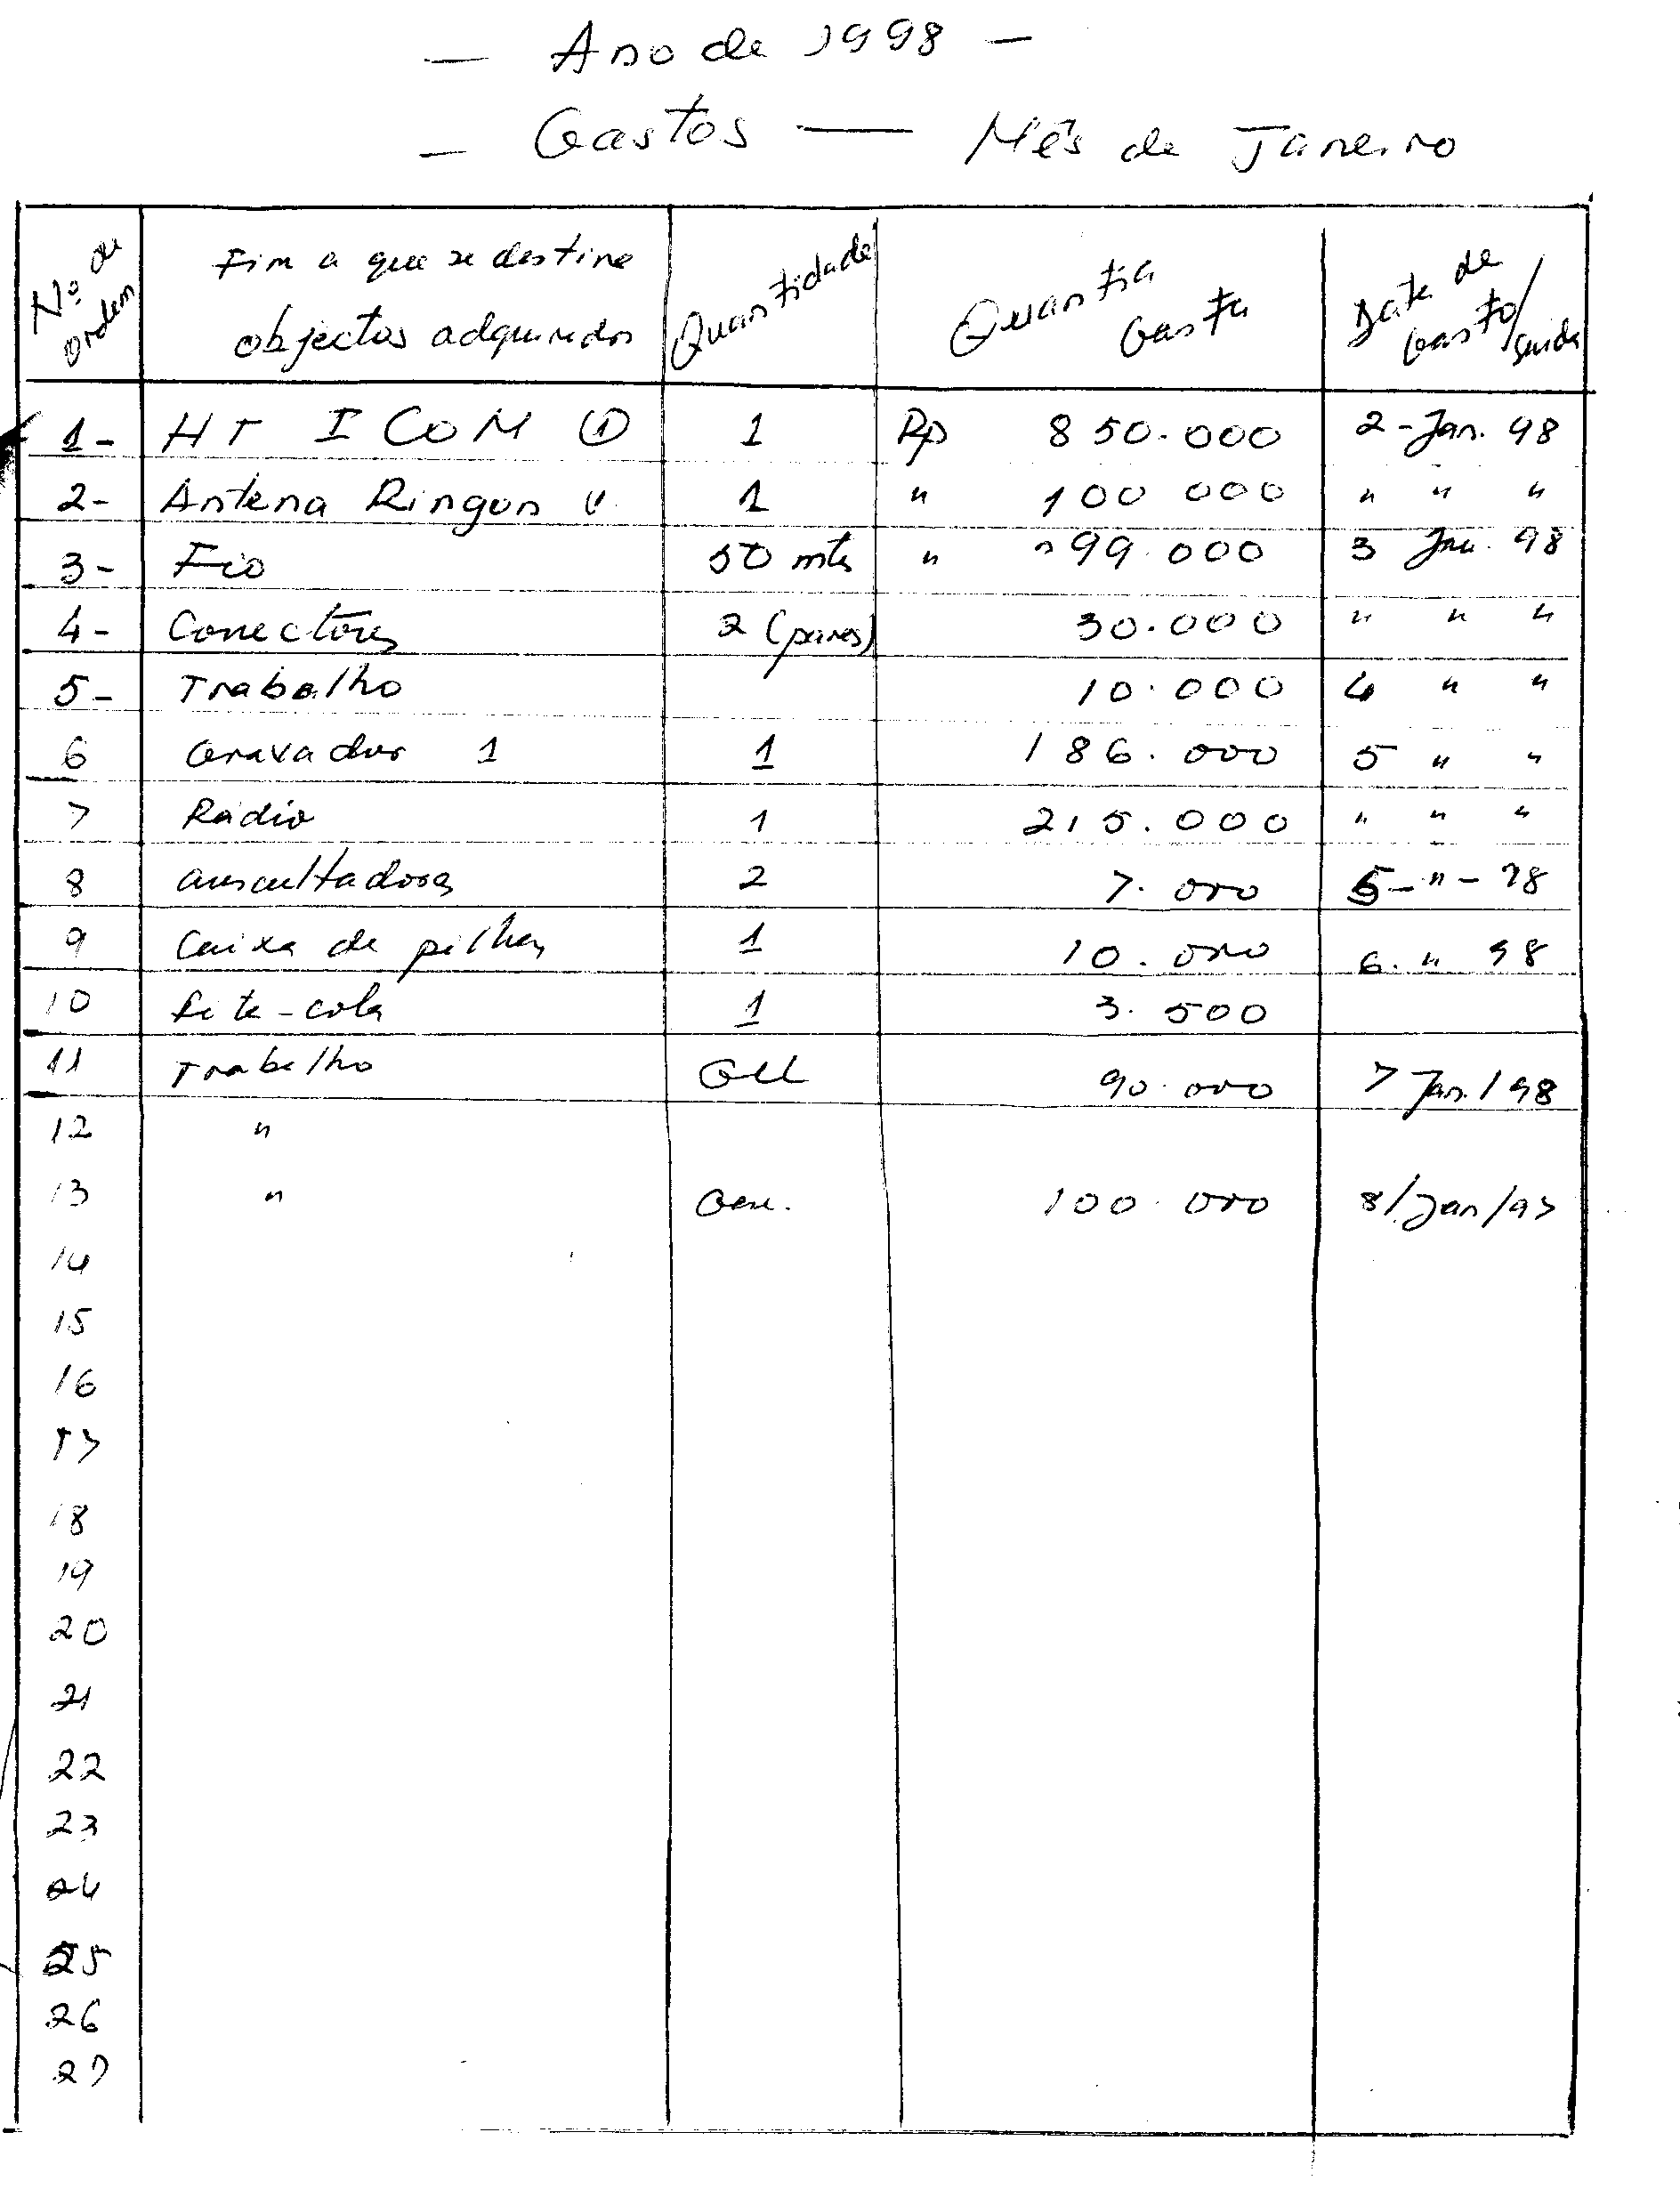 — Ano de 1998 —
— Gastos — Mês de Janeiro
Nº de ordem Fim a que se destine objectos adquiridos Quantidade Quantia Gasta Data de Gasto/saida
1- HT ICOM ① 1 Rp 850.000 2-Jan. 98
2- Antena Ringon 1 " 100 000 " " "
3- Fio 50 mts " 99.000 3 Jan. 98
4- Conectores 2 (pares) 30.000 " " "
5- Trabalho 10.000 4 " "
6 Gravador 1 1 186.000 5 " "
7 Rádio 1 215.000 " " "
8 auscultadores 2 7.000 5-"-98
9 Caixa de pilhas 1 10.000 6. " 98
10 fita-cola 1 3.500
11 Trabalho 90.000 7 Jan./98
12 "
13 " 100.000 8/Jan/97
14
15
16
17
18
19
20
21
22
23
24
25
26
27